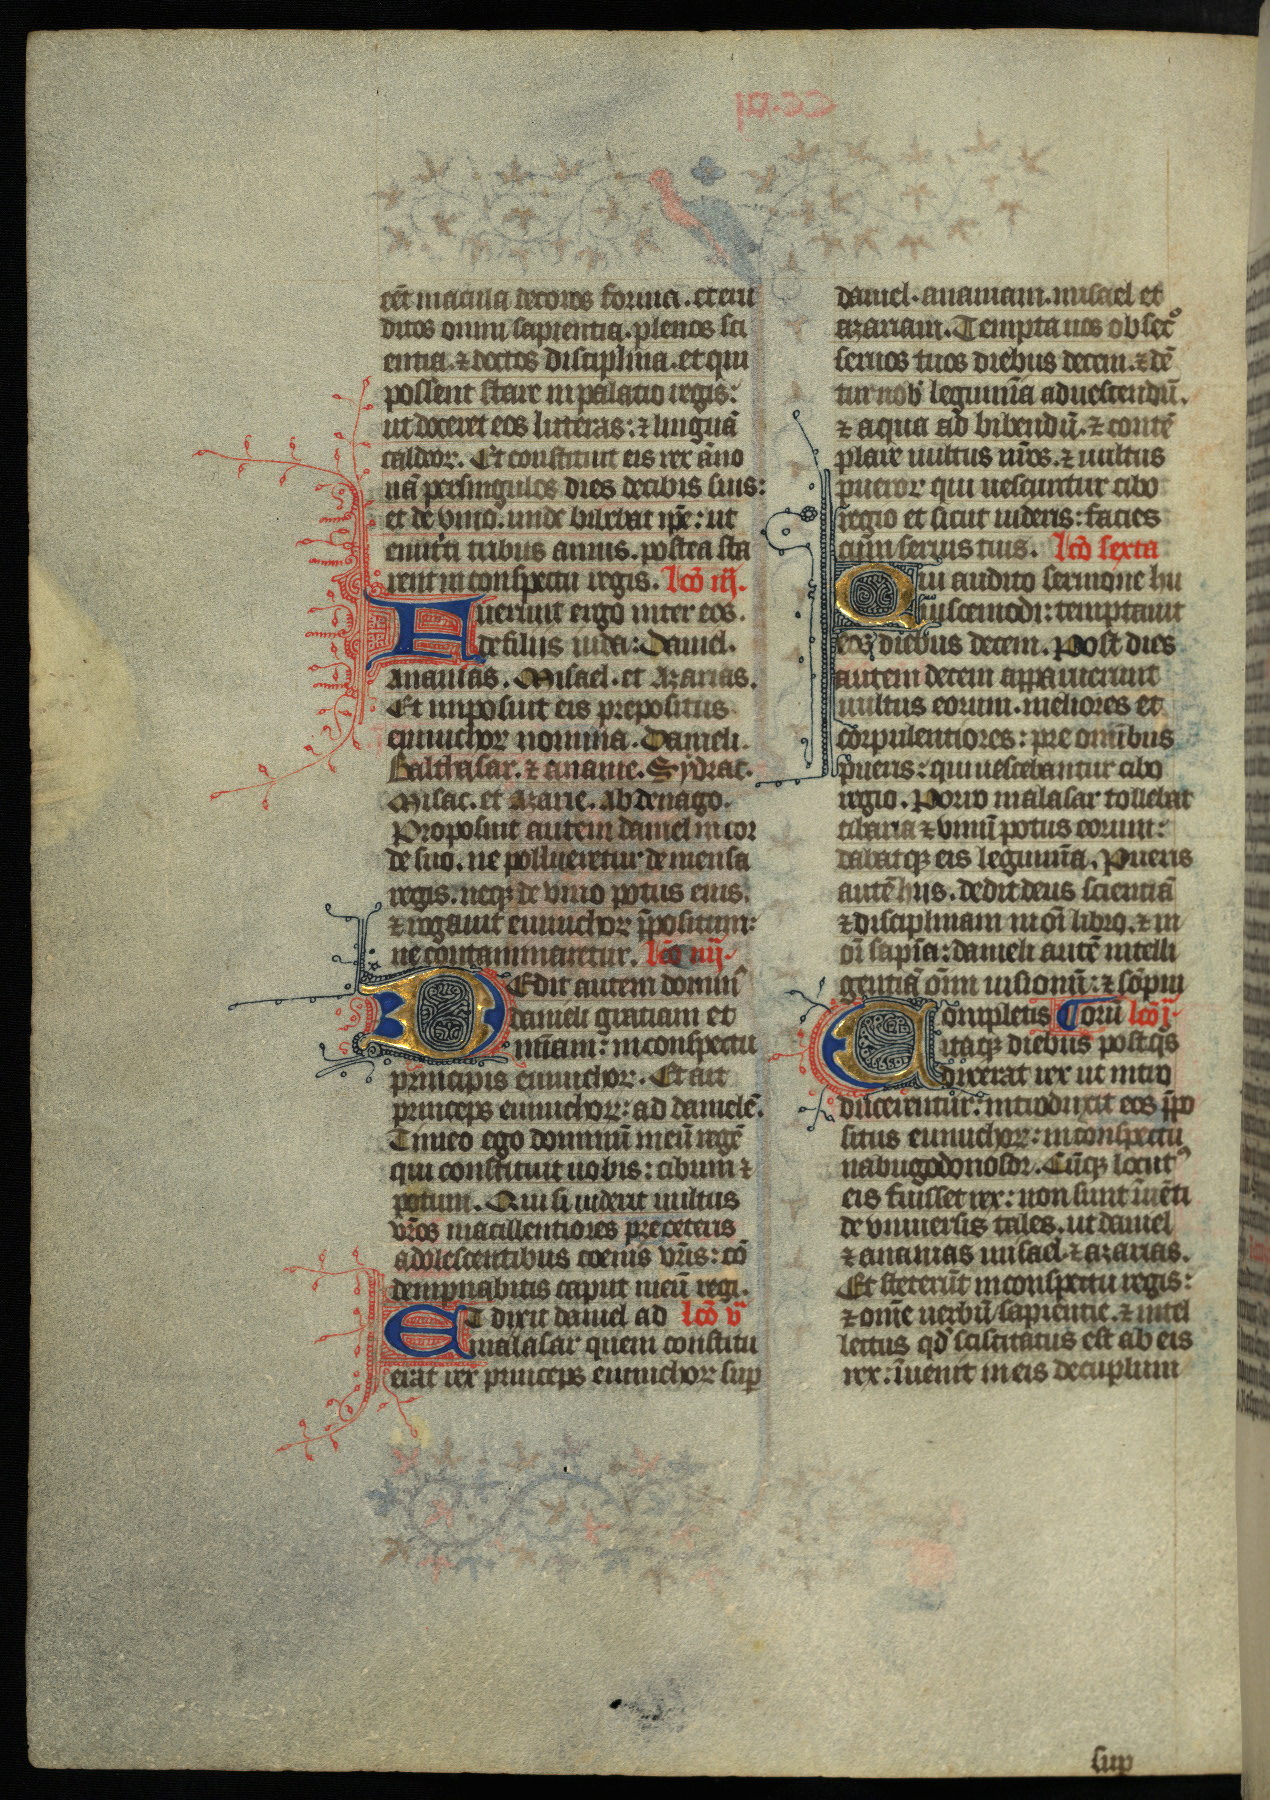 eēt macula decoros forma. et eru
ditos omni sapientia. plenos sci
entia. ⁊ doctos disciplina. et qui
possent stare in palatio regis:
ut doceret eos litteras: ⁊ linguā
caldeoꝝ. Et constituit eis rex āno
nā per singulos dies de cibis suis:
et de vino. unde bibebat ip̄e: ut
enutͥti tribus annis. postea sta
rent in conspectu regis. lcō iij.
Fuerunt ergo inter eos.
de filiis iuda: Daniel.
Ananias. Misael. et Azarias.
Et imposuit eis prepositus
eunuchoꝝ nomina. Danieli.
Balthasar. ⁊ ananie. Sydrac.
Misac. et Azarie. Abdenago.
Proposuit autem daniel in cor
de suo. ne pollueretur de mensa
regis. neqꝫ de vino potus eius.
⁊ rogauit eunuchoꝝ p̄positum:
ne contaminaretur. lcō iiij.
Dedit autem domin᷒
danieli gratiam et
mīam: in conspectu
principis eunuchoꝝ. Et ait
princeps eunuchoꝝ: ad danielē.
Timeo ego dominū meū regē
qui constituit uobis: cibum ⁊
potum. Qui si uiderit uultus
vr̄os macillentiores pre ceteris
adolescentibus coeuis vr̄is: cō
dempnabitis caput meū regi.
Et dixit daniel ad lcō v̄
malasar quem constitu
erat rex princeps eunuchoꝝ sup
daniel. ananiam. misael et
azariam. Tempta nos obsecͦ
seruos tuos diebus decem. ⁊ dē
tur nob᷒ legumīa ad uescendū.
⁊ aqua ad bibendū. ⁊ contē
plare uultus nr̄os. ⁊ uultus
pueroꝝ qui uescuntur cibo
regio et sicut uideris: facies
cum seruis tuis. lcō sexta
Qui audito sermone hu
iuscemodi: temptauit
eoꝫ diebus decem. Post dies
autem decem apparuerunt
uultus eorum. meliores et
corpulentiores: pre om̄ibus
pueris: qui uescebantur cibo
regio. Porro malasar tollebat
cibaria ⁊ vinū potus eorum:
dabatqꝫ eis legumīa. Pueris
autē hijs. dedit deus scientiā
⁊ disciplinam in oī libro. ⁊ in
oī sapīa: danieli autē intelli
gentiā oīm uisionū: ⁊ sōpni
Completis orū lcō j.
itaqꝫ diebus post qͥs
dixerat rex ut intro
ducerentur: introduxit eos p̄po
situs eunuchoꝝ: in conspectu
nabugodonosor. Cūqꝫ locut᷒
eis fuisset rex: non sunt īuēti
de vniuersis tales. ut daniel
⁊ ananias misael. ⁊ azarias.
Et steterūt in conspectu regis:
⁊ om̄e uerbū sapientie. ⁊ intel
lectus qd̓ sciscitatus est ab eis
rex: īuenit in eis decuplum
sup